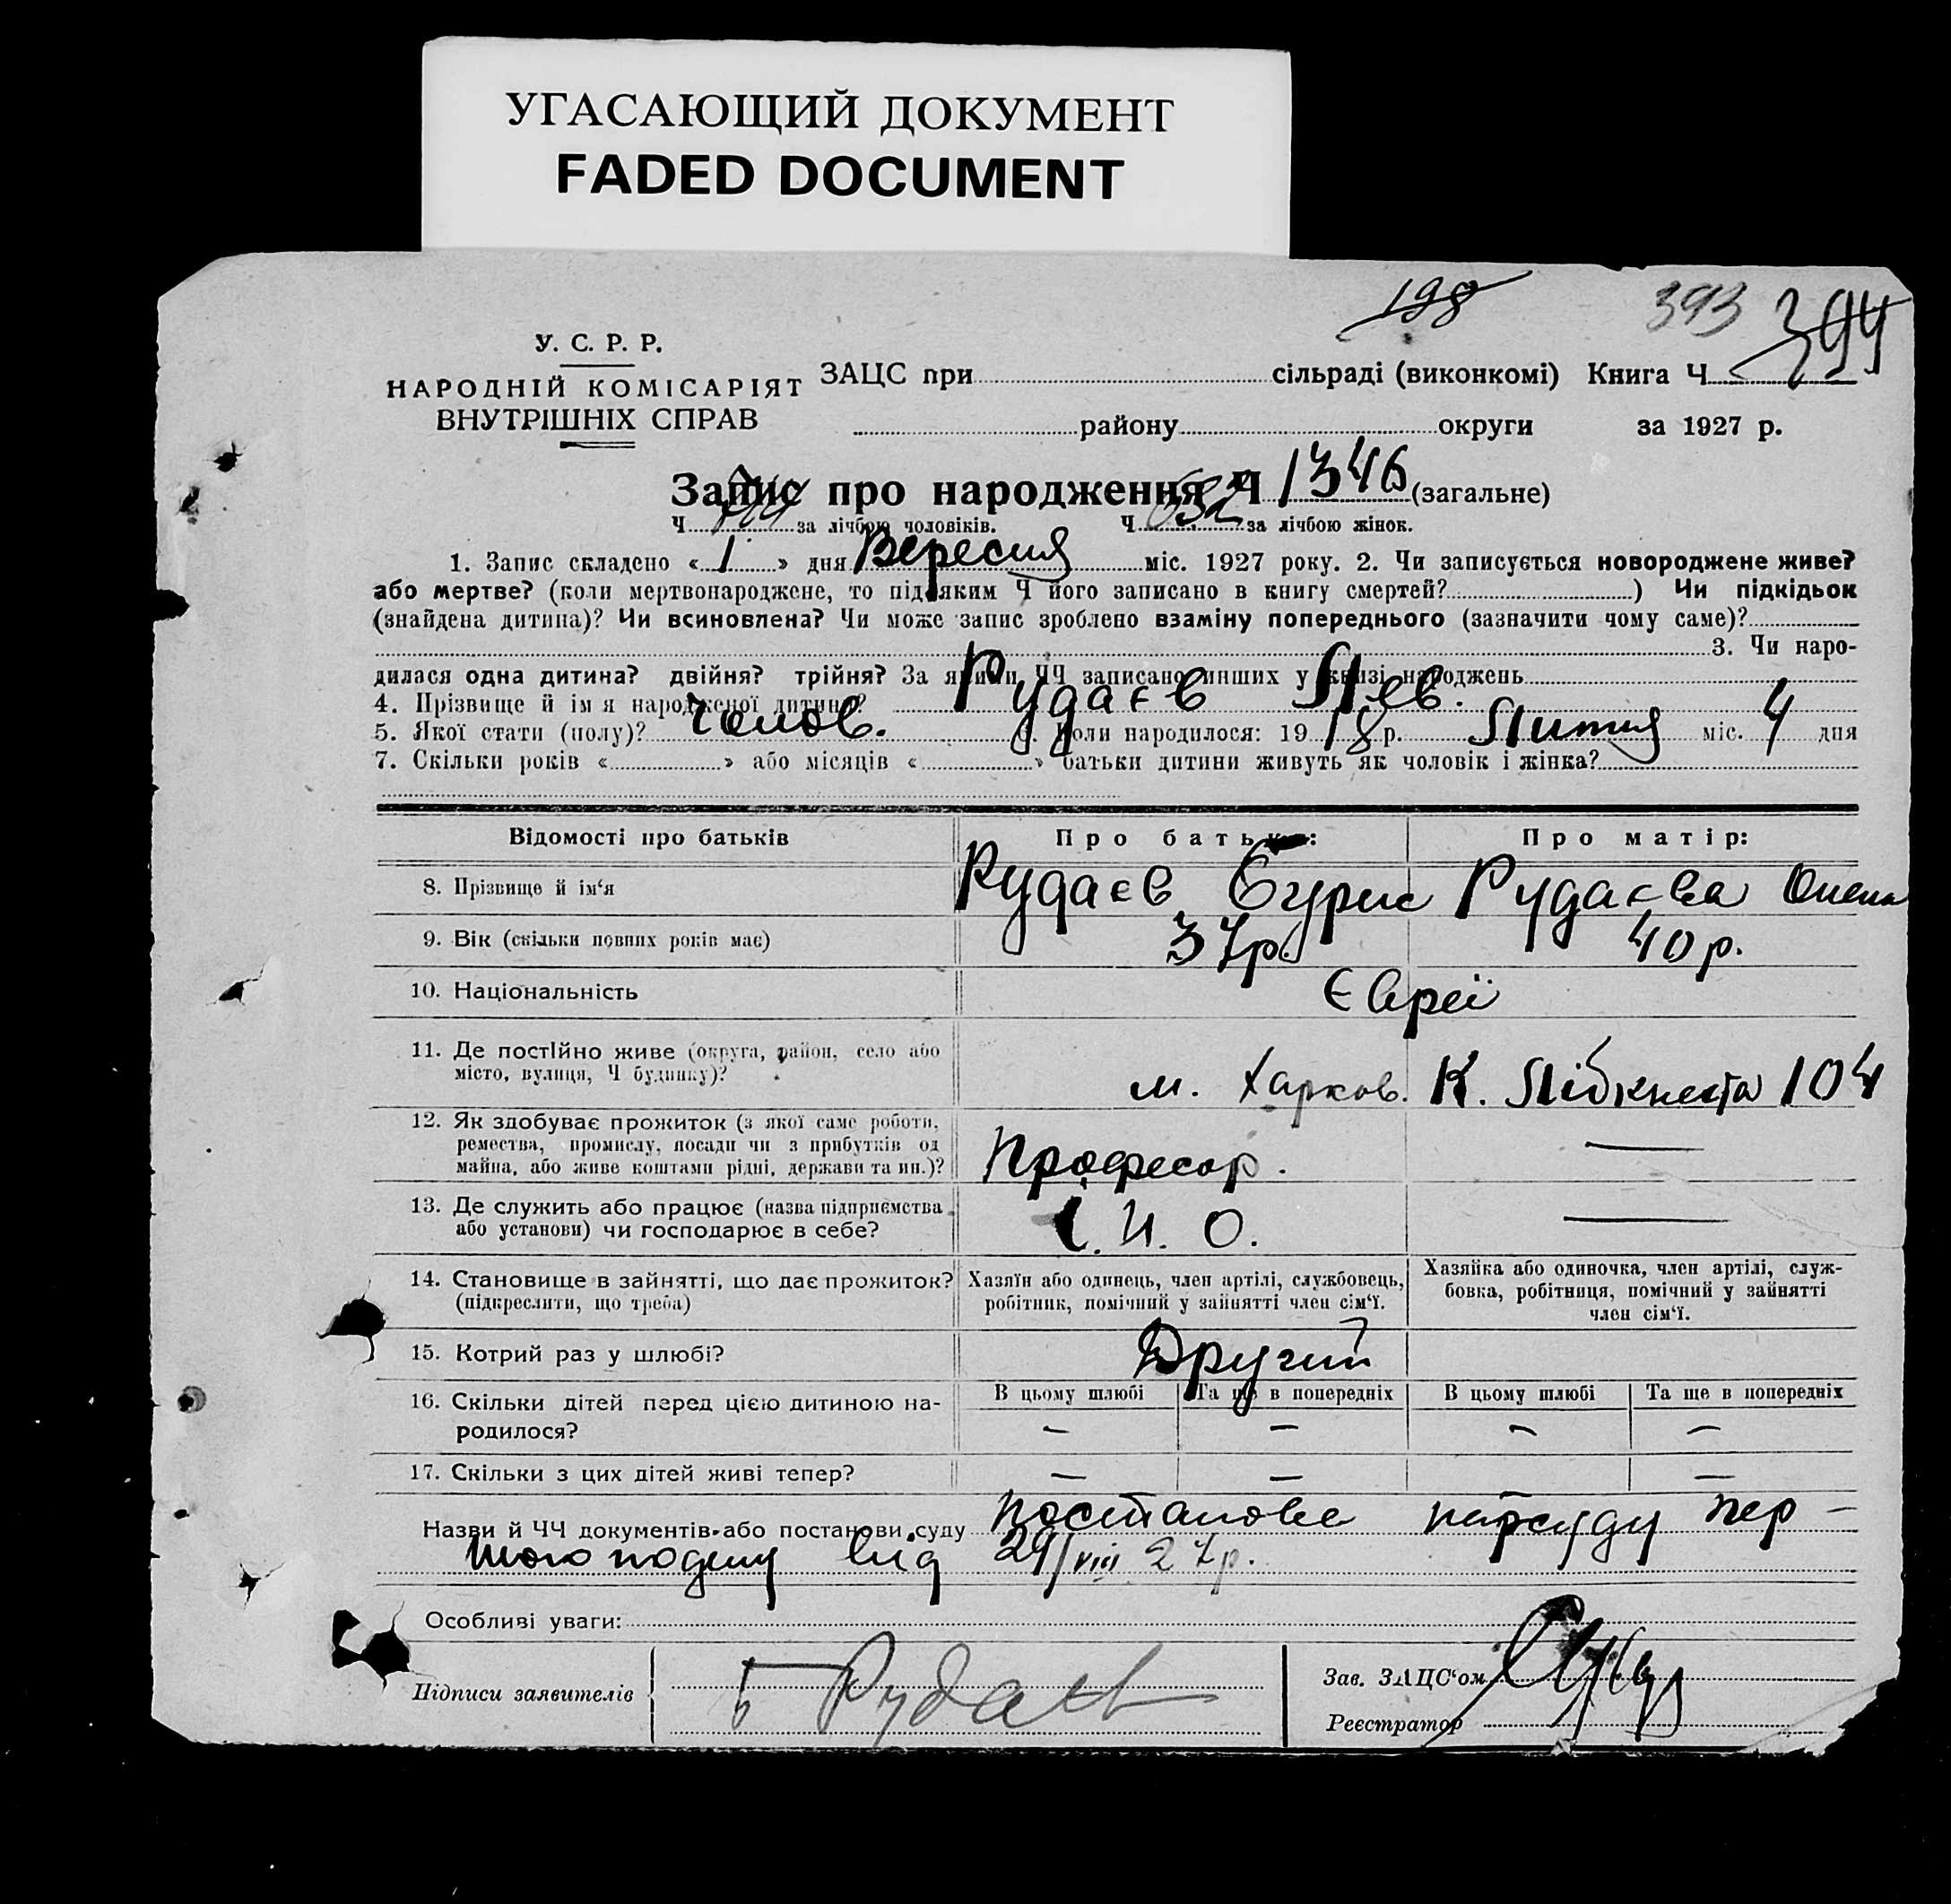 УГАСАЮЩИЙ ДОКУМЕНТ
FADED DOCUMENT
198
393 394
У. С. Р. Р.
НАРОДНІЙ КОМІСАРІЯТ
ВНУТРІШНІХ СПРАВ
ЗАЦС при сільраді (виконкомі) Книга Ч
району округи за 1927 р.
Запис про народження Ч 1346 (загальне)
Ч за лічбою чоловіків. Ч 632 за лічбою жінок.
1. Запис складено « 1 » дня Вересня міс. 1927 року. 2. Чи записується новороджене живе?
або мертве? (коли мертвонароджене, то під яким Ч його записано в книгу смертей? ) Чи підкідьок
(знайдена дитина)? Чи всиновлена? Чи може запис зроблено взаміну попереднього (зазначити чому саме)?
3. Чи наро-
дилася одна дитина? двійня? трійня? За якими ЧЧ записано инших у книзі народжень
4. Прізвище й ім я народженої дитини? Рудаєв Лев.
5. Якої стати (полу)? Чолов. 6. Коли народилося: 19 18 р. Липня міс. 4 дня
7. Скільки років « » або місяців « » батьки дитини живуть як чоловік і жінка?
Відомості про батьків Про батька: Про матір:
8. Прізвище й ім‘я Рудаєв Борис Рудаєва Олена
9. Вік (скільки повних років має) 37р. 40 р.
10. Національність Євреї
11. Де постійно живе (округа, район, село або
місто, вулиця, Ч будинку)? м. Харков. К. Лібкнехта 104
12. Як здобуває прожиток (з якої саме роботи,
ремества, промислу, посади чи з прибутків од
майна, або живе коштами рідні, держави та ин.)? Професор. —
13. Де служить або працює (назва підприємства
або установи) чи господарює в себе? І. Н. О. —
14. Становище в зайнятті, що дає прожиток?
(підкреслити, що треба)
Хазяїн або одинець, член артілі, службовець,
робітник, помічний у зайнятті член сім‘ї.
Хазяйка або одиночка, член артілі, служ-
бовка, робітниця, помічний у зайнятті
член сім‘ї.
15. Котрий раз у шлюбі? Другий
16. Скільки дітей перед цією дитиною на-
родилося?
В цьому шлюбі Та ще в попередніх В цьому шлюбі Та ще в попередніх
— — — —
17. Скільки з цих дітей живі тепер? — — —
Назви й ЧЧ документів або постанови суду постанова нарсуду пер-
шого від 29/VIII 27р.
Особливі уваги:
Підписи заявителів Б Рудаев
Зав. ЗАЦС‘ом
Реєстратор